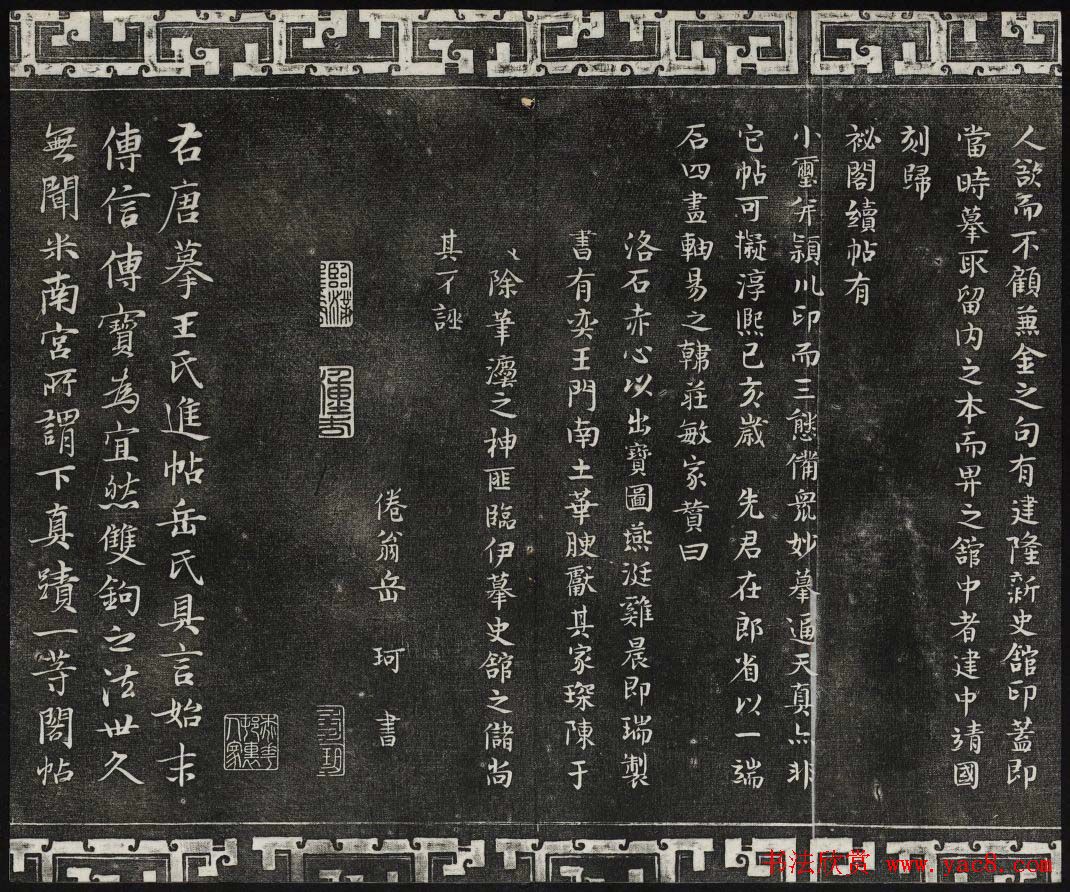 人欲而不顧兼金之句有建隆新史舘印蓋即
當時摹取留内之本而畀之舘中者建中靖國
刻歸
祕閣續帖有
小璽并潁川印而三態備衆妙摹逼天真亦非
它帖可擬淳熙已亥歲 先君在郎省以一端
石四畫軸易之韓莊敏家贊曰
洛石赤心以出寶圖燕涎雞晨即瑞製
書有奕王門南土華腴獻其家琛陳于
、除筆瀍之神匪臨伊摹史舘之儲尚
其不誣
倦翁岳珂書
右唐摹王氏進帖岳氏具言始末
傳信傳寶為宜然雙鉤之法世久
無聞米南宮所謂下真蹟一等閣帖
书法欣赏 www.yac8.com